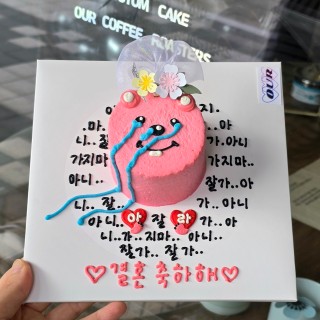 CUSTOM CAKE
OUR COFFEE ROASTERS
OUR
지.
.마.
..아
니..잘
가..아
가지마
가지마..
아니..
잘가..아
니..잘..
가..아니
아니..아 잘 라 가..아
니..가..지마..아니..
잘가..잘가..
♡결혼 축하해♡